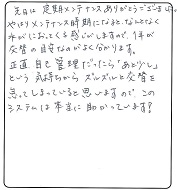 先日は定期メンテナンスありがとうございました。
やはりメンテナンス時期になると、なんとなく
水がにおってくる感じがしますので、1年が
交管の目安なのがよく分かります。
正直自己管理だったら「あと少し」
という気持ちからズルズルと交管を
怠ってしまっていると思いますので、この
システムは本当に助かっています!